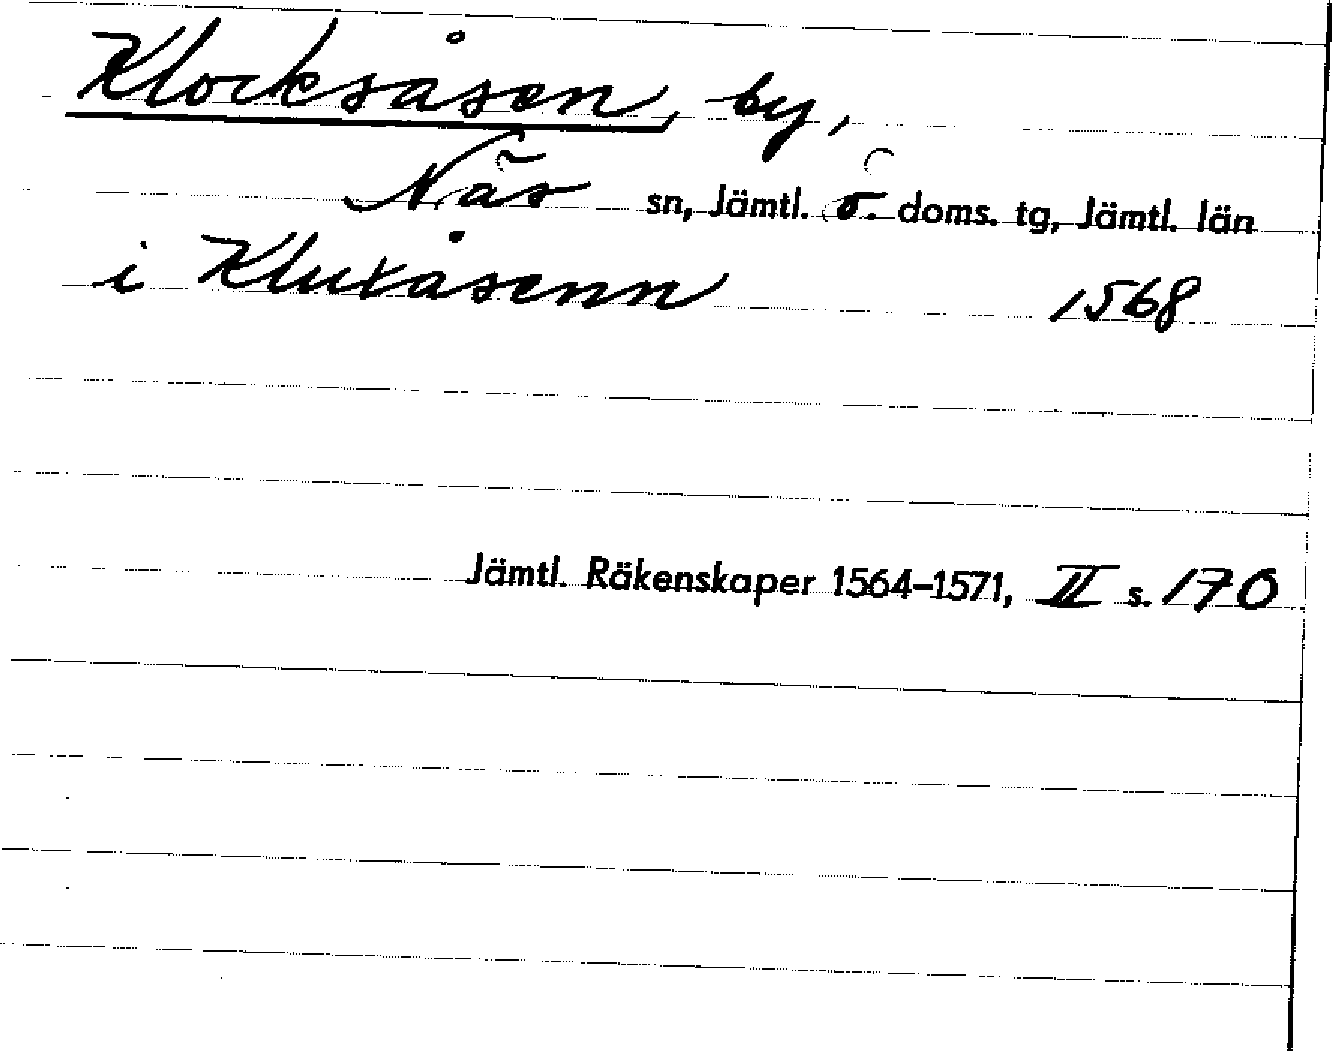 Klocksåsen, by,
Näs sn, Jämtl. ö. doms. tg, Jämtl. län
i Kluxåsenn 1568
Jämtl. Räkenskaper 1564-1571, II s. 170